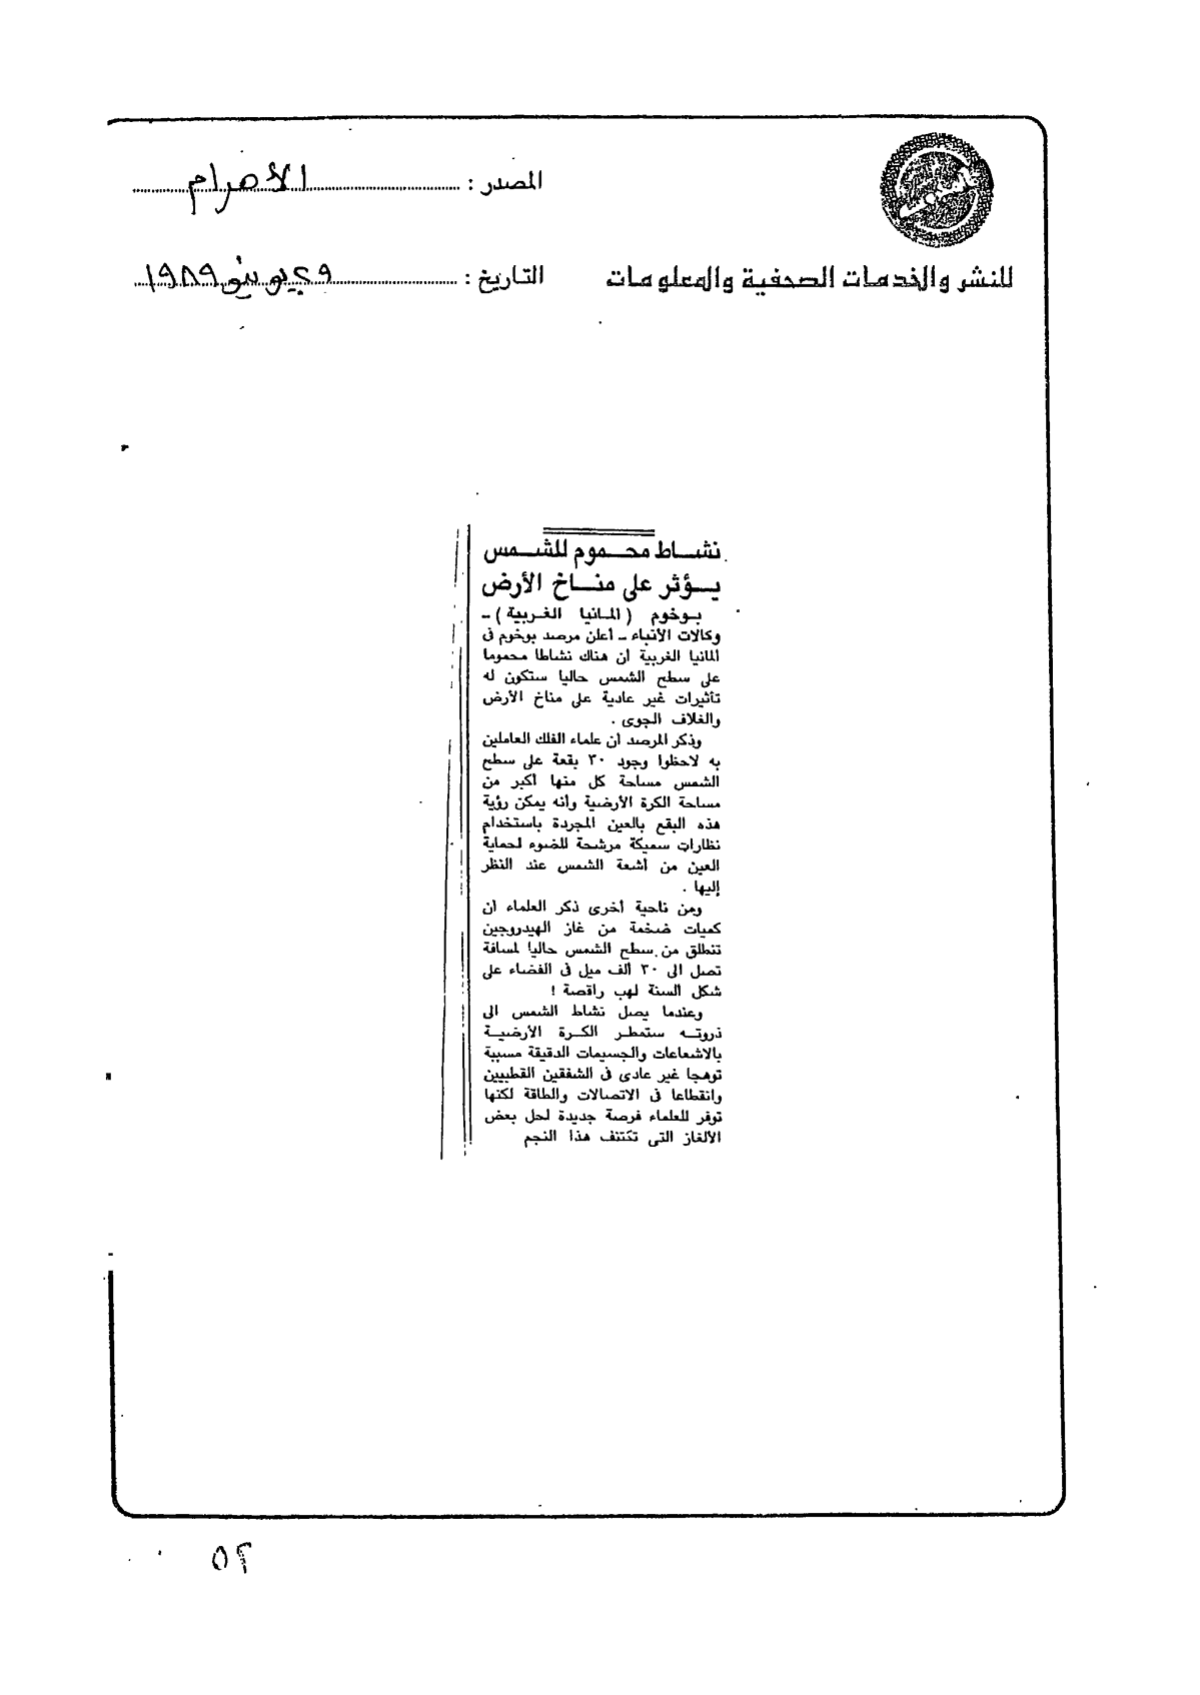 المصدر : الأهرام
للنشر والخدمات الصحفية والمعلومات
التاريخ : ٢٩ يونيو ١٩٨٩
نشاط محموم للشمس
يؤثر على مناخ الأرض
بوخوم ( المانيا الغربية ) ــ
وكالات الأنباء ــ أعلن مرصد بوخوم فى
المانيا الغربية أن هناك نشاطا محموما
على سطح الشمس حاليا ستكون له
تأثيرات غير عادية على مناخ الأرض
والغلاف الجوى .
وذكر المرصد أن علماء الفلك العاملين
به لاحظوا وجود ٣٠ بقعة على سطح
الشمس مساحة كل منها أكبر من
مساحة الكرة الأرضية وأنه يمكن رؤية
هذه البقع بالعين المجردة باستخدام
نظارات سميكة مرشحة للضوء لحماية
العين من أشعة الشمس عند النظر
إليها .
ومن ناحية أخرى ذكر العلماء أن
كميات ضخمة من غاز الهيدروجين
تنطلق من سطح الشمس حاليا لمسافة
تصل الى ٣٠ ألف ميل فى الفضاء على
شكل السنة لهب راقصة !
وعندما يصل نشاط الشمس الى
ذروته ستمطر الكرة الأرضية
بالاشعاعات والجسيمات الدقيقة مسببة
توهجا غير عادى فى الشفقين القطبيين
وانقطاعا فى الاتصالات والطاقة لكنها
توفر للعلماء فرصة جديدة لحل بعض
الألغاز التى تكتنف هذا النجم
٥٢